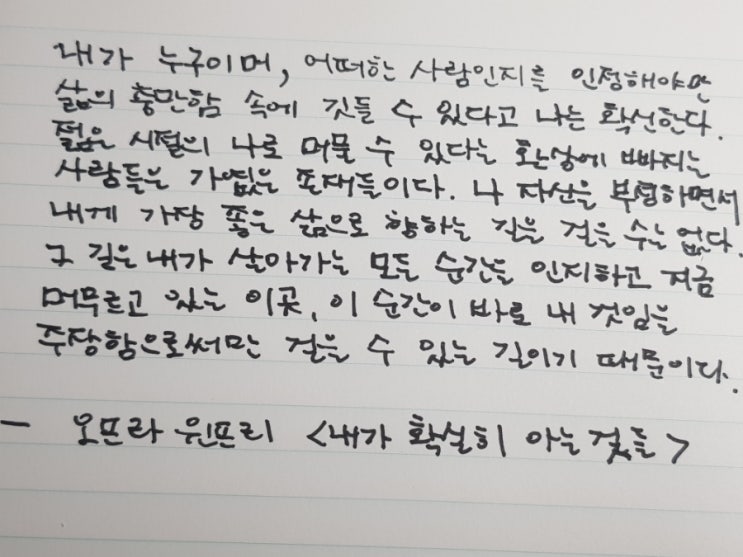 내가 누구이며, 어떠한 사람인지를 인정해야만
삶의 충만함 속에 깃들 수 있다고 나는 확신한다.
젊은 시절의 나로 머물 수 있다는 환상에 빠지는
사람들은 가엾은 존재들이다. 나 자신을 부정하면서
내게 가장 좋은 삶으로 향하는 길을 걸을 수는 없다.
그 길은 내가 살아가는 모든 순간들을 인지하고 지금
머무르고 있는 이곳, 이 순간이 바로 내 것임을
주장함으로써만 걸을 수 있는 길이기 때문이다.
- 오프라 윈프리 <내가 확실히 아는 것들>